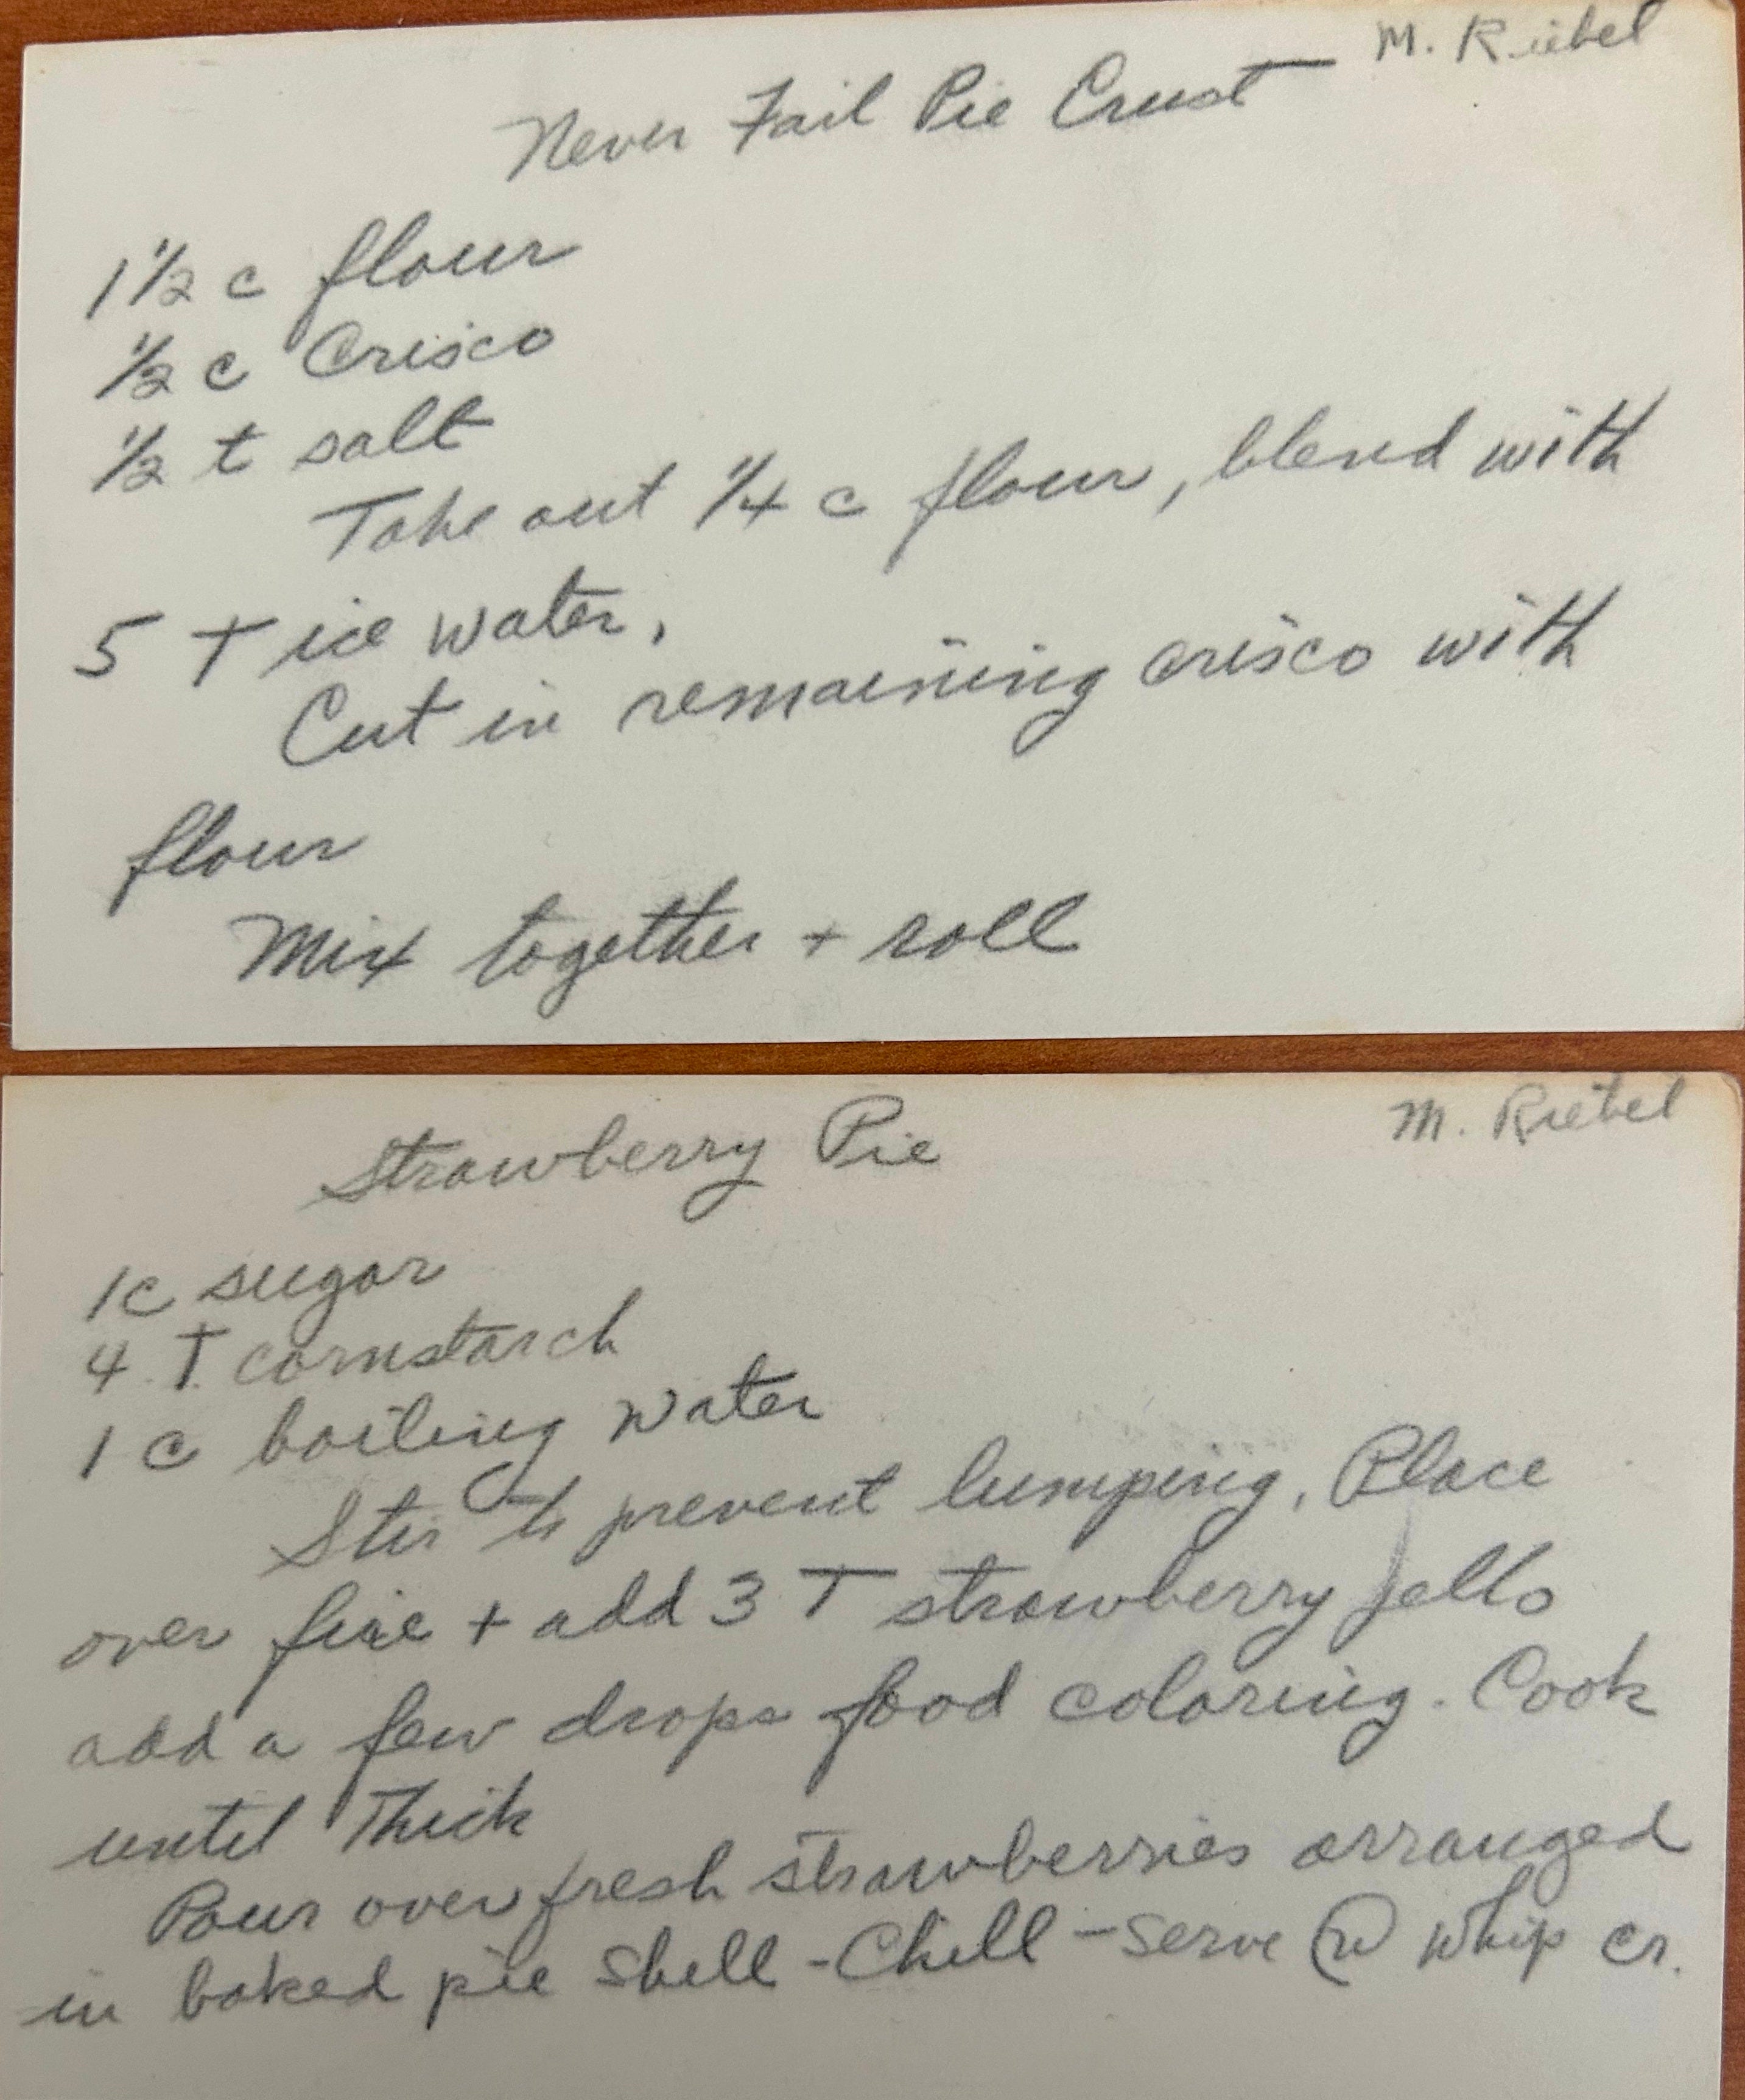 M. Riebel
Never Fail Pie Crust
1 1/2 c flour
1/2 c Crisco
1/2 t salt
Take out 1/4 c flour, blend with
5 T ice water,
Cut in remaining crisco with
flour
Mix together + roll
Strawberry Pie M. Riebel
1c sugar
4 T. cornstarch
1 c boiling water
Stir to prevent lumping. Place
over fire + add 3 T strawberry jello
add a few drops food coloring. Cook
until Thick
Pour over fresh strawberries arranged
in baked pie shell - Chill - serve w whip cr.